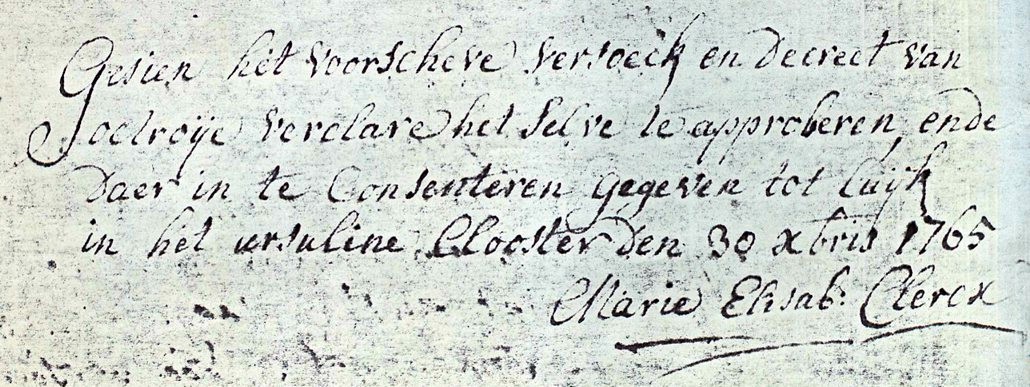 Gesien het voorscheve versoeck en decreet van
octroije verclare het selve te approberen, ende
daer in te Consenteren gegeven tot luijk
in het ursuline Clooster den 30 xbris 1765
Marie Elisab: Clercx